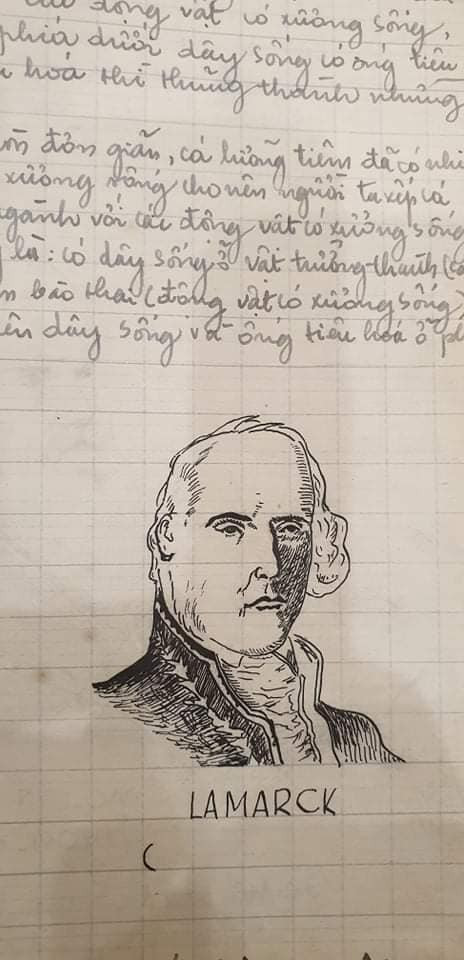 động vật có xưởng sống,
phiá dưới dây sống có ống tiêu
hoá thì thũng thành nhũng
đỏn giẫn, cá lưỡng tiêm đã có nhi
xưởng sống cho nên người ta xếp cá
ngành vối các động vật có xưởng sống
là: có dây sống ỏ vật trưởng-thành (
bào thai (động vật có xưởng sống)
dây sống và ống tiêu hoá ỏ ph
LAMARCK
(